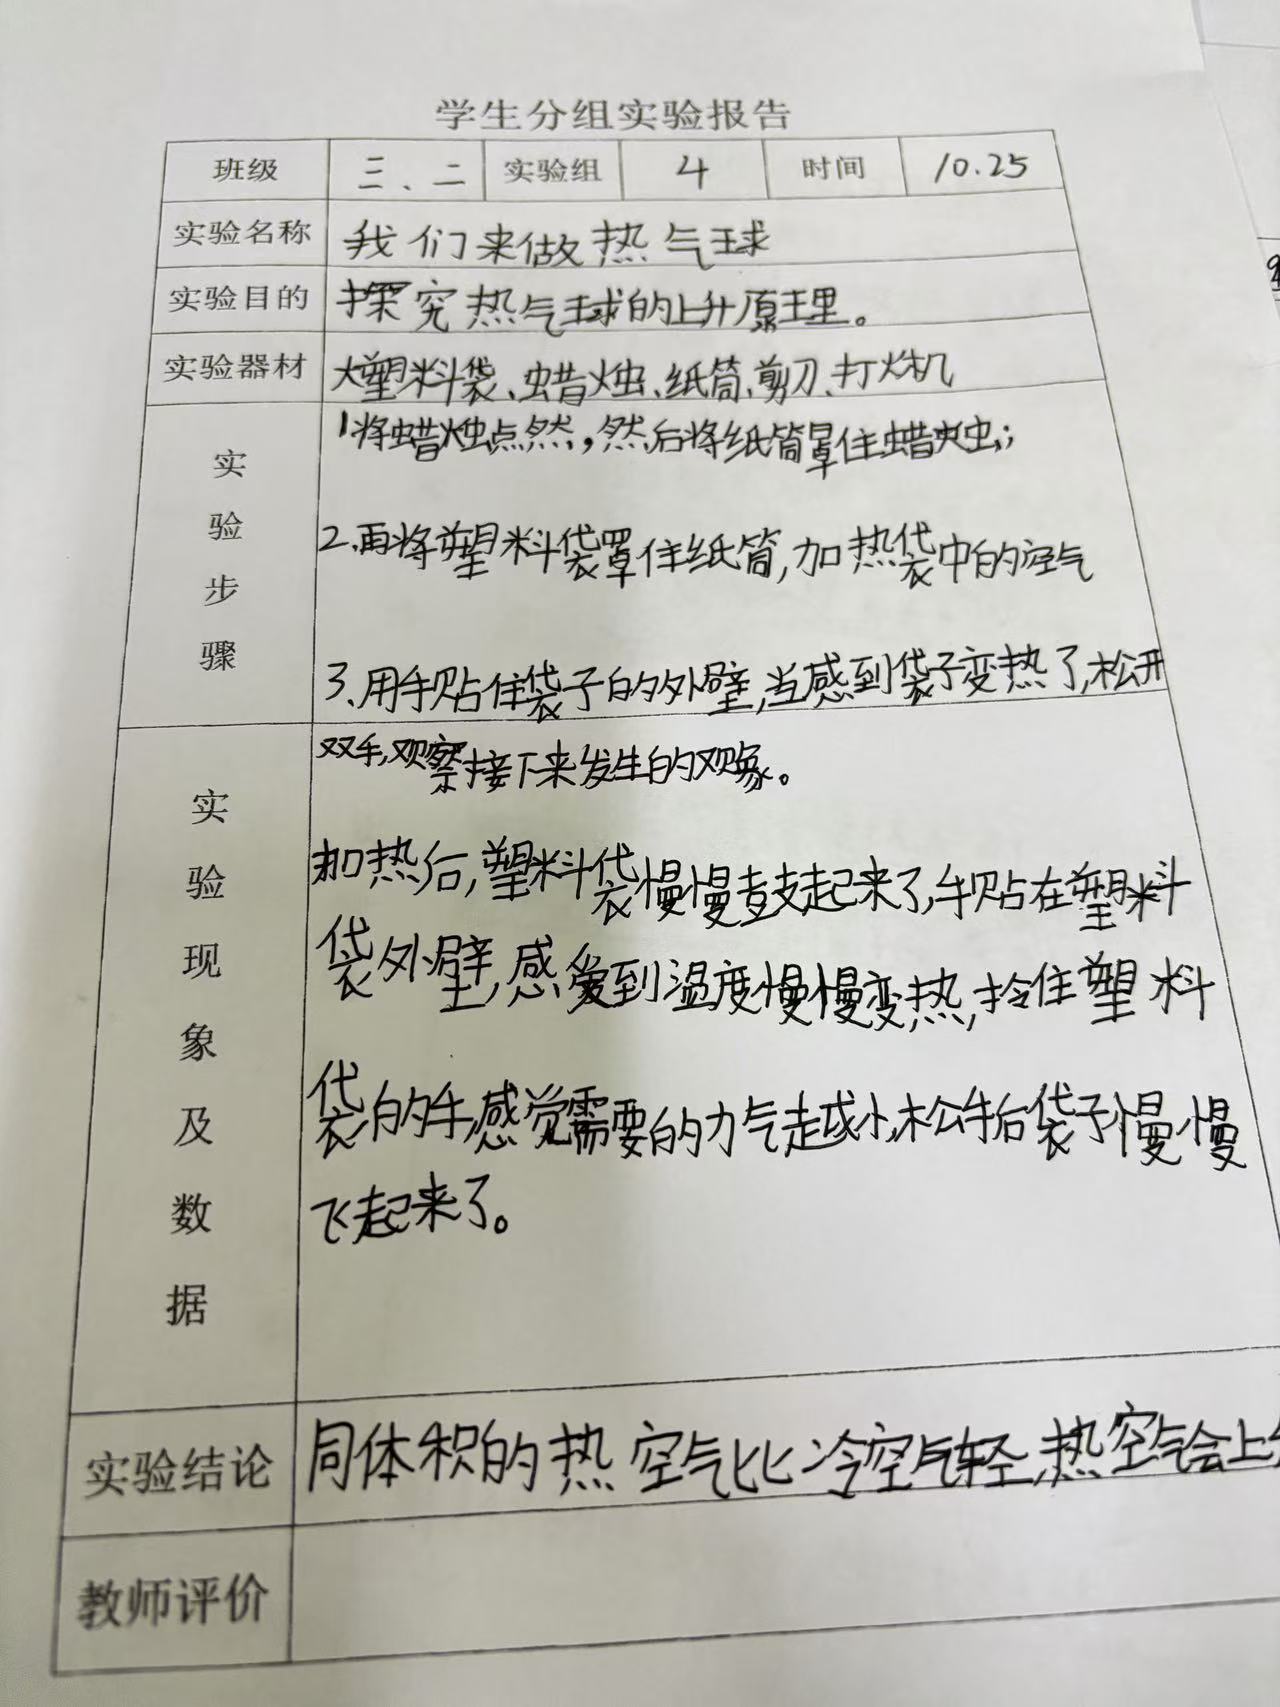 学生分组实验报告
班级 三、二 实验组 4 时间 10.25
实验名称 我们来做热气球
实验目的 探究热气球的上升原理。
实验器材 大塑料袋、蜡烛、纸筒、剪刀、打火机
实验步骤
1将蜡烛点然，然后将纸筒罩住蜡烛；
2.再将塑料袋罩住纸筒，加热袋中的空气
3.用手贴住袋子的外壁，当感到袋子变热了，松开
双手，观察接下来发生的现象。
实验现象及数据
加热后，塑料袋慢慢鼓起来了，手贴在塑料
袋外壁，感受到温度慢慢变热，拎住塑料
袋的手，感觉需要的力气越小，松手后袋子慢慢
飞起来了。
实验结论 同体积的热空气比冷空气轻，热空气会上
教师评价